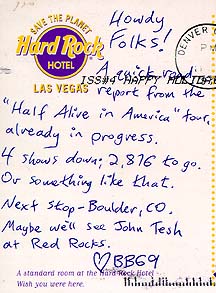 SAVE THE PLANET
Hard Rock
HOTEL
LAS VEGAS
Howdy
Folks!
DENVER C
PM
ISS#4 HAPPY
A quick road
report from the
"Half Alive in America" tour,
already in progress.
4 shows down; 2,876 to go.
Or something like that.
Next stop-Boulder, CO.
Maybe we'll see John Tesh
at Red Rocks.
♡BB69
A standard room at the Hard Rock Hotel
Wish you were here.